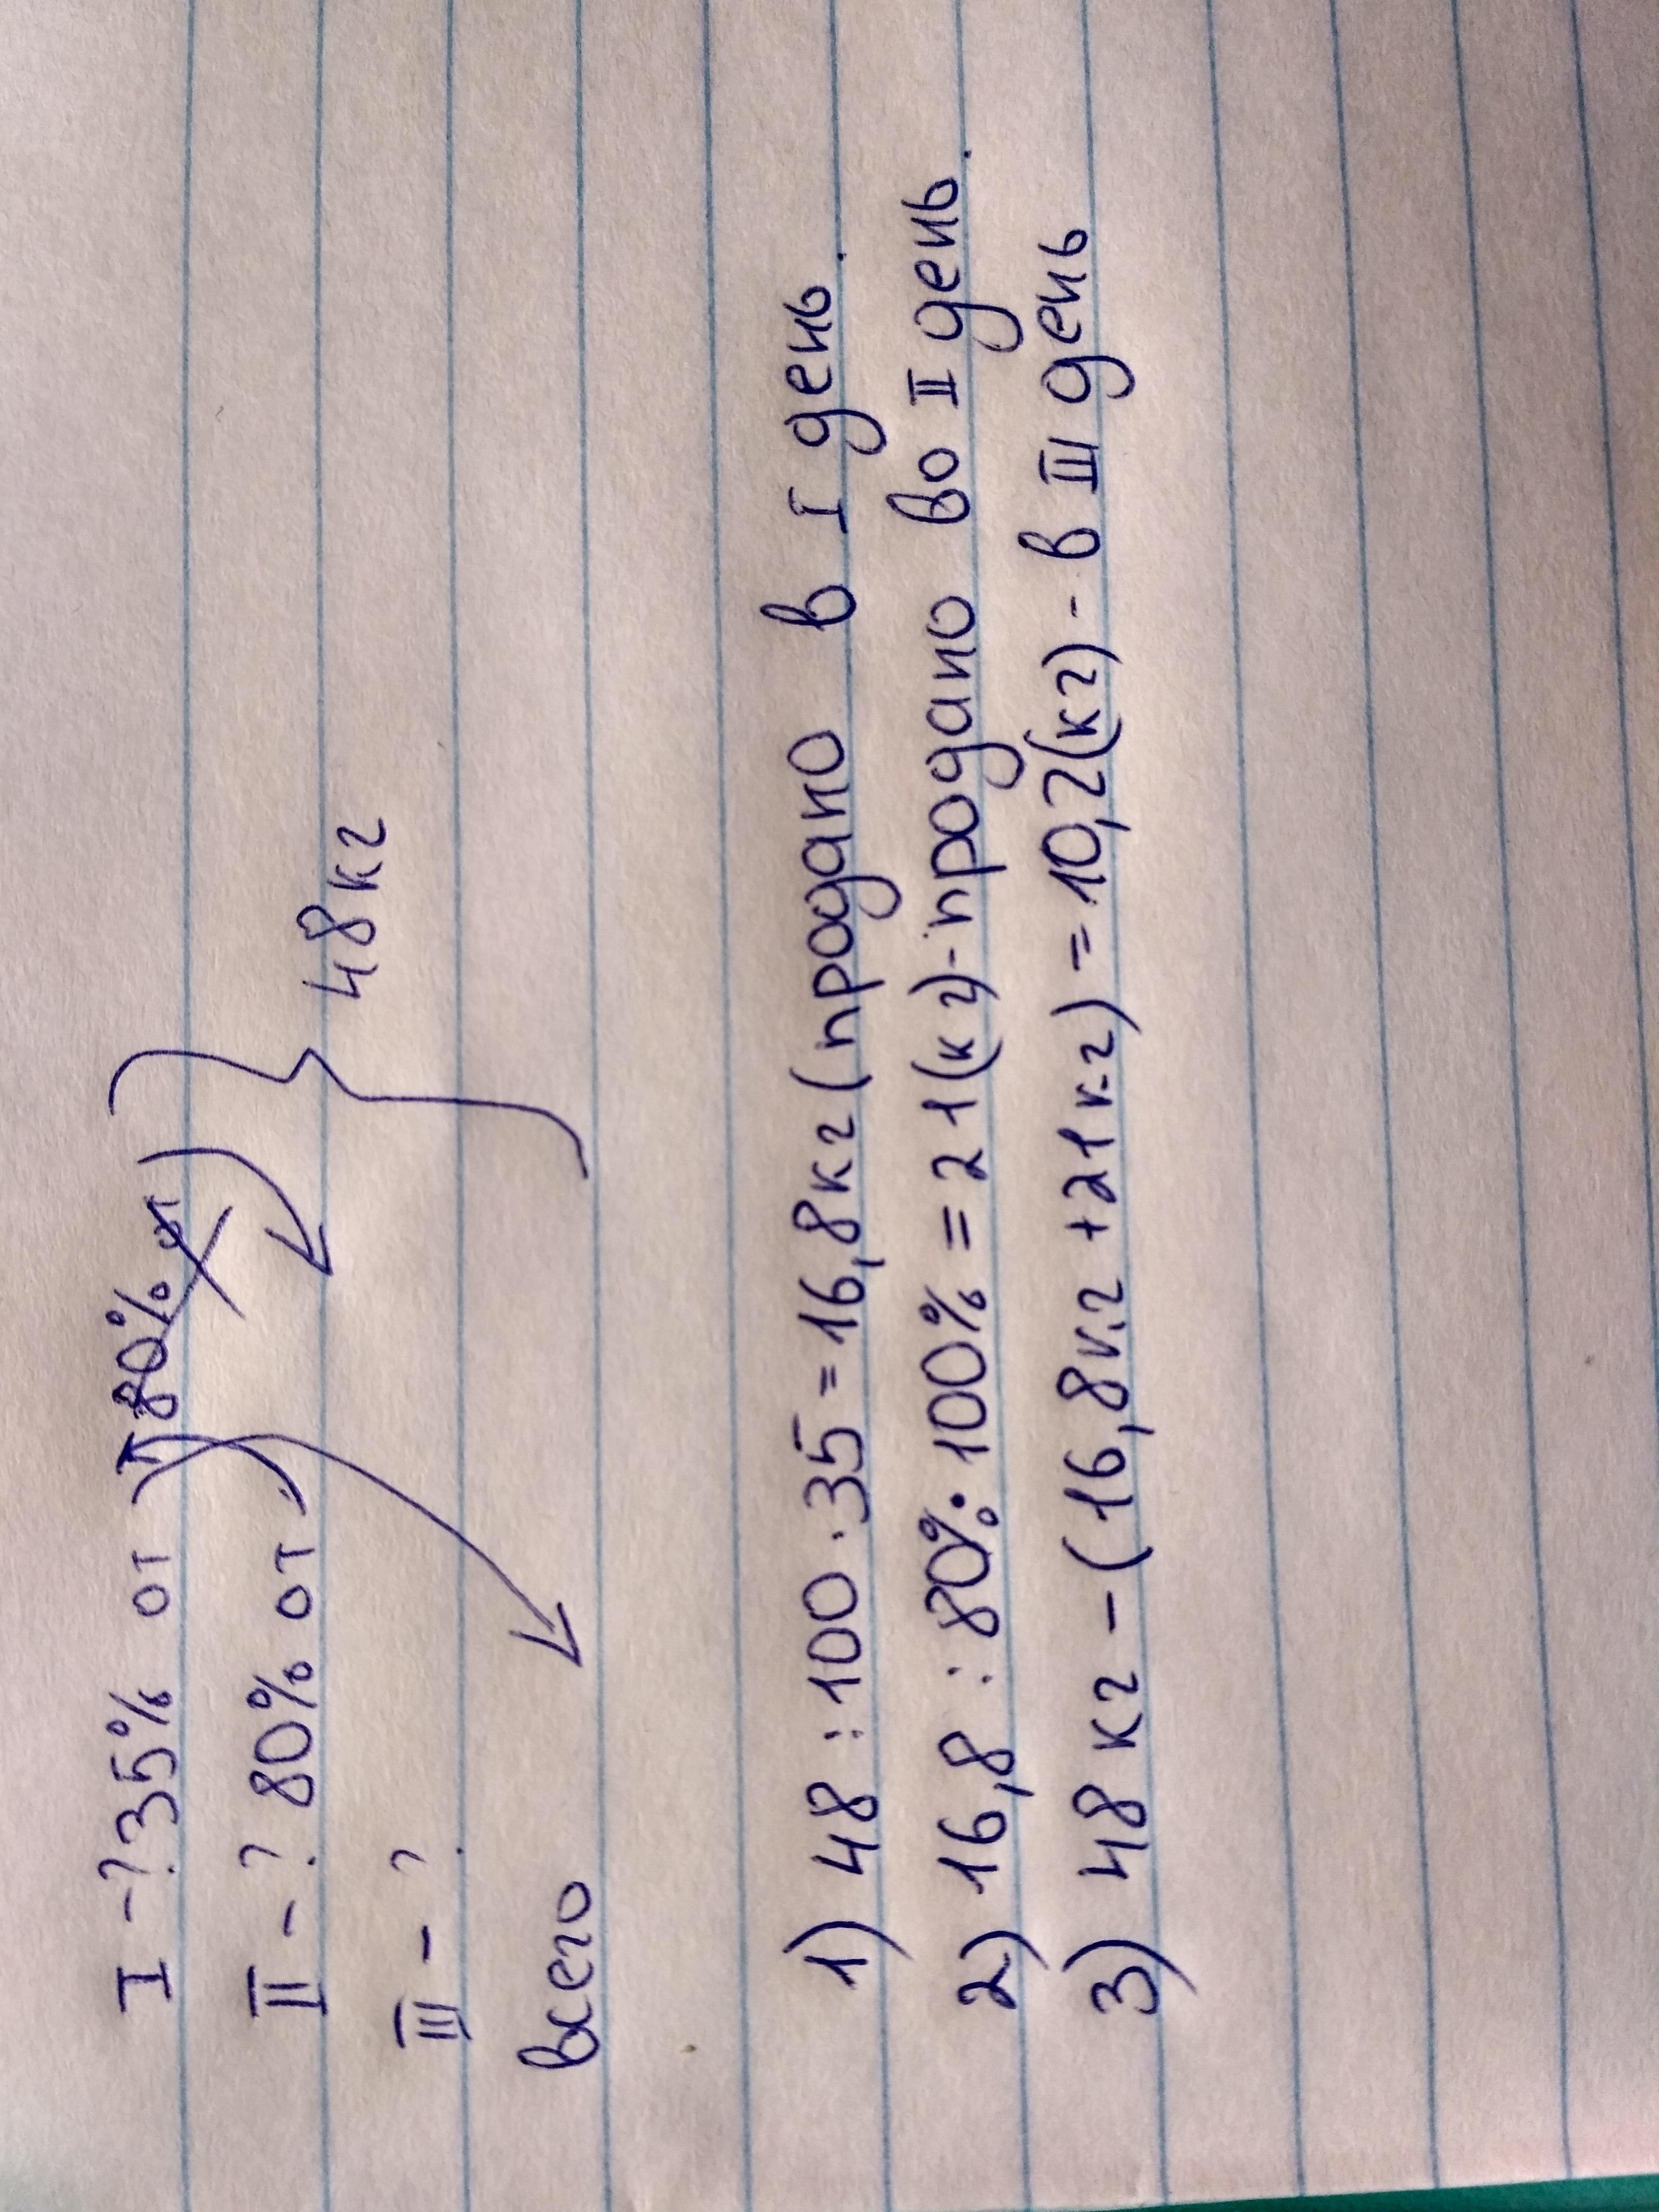 I - ? 35% от
II - ? 80% от
III - ?
всего
48 кг
1) 48 : 100 · 35 = 16,8 кг (продано в I день.
2) 16,8 : 80% · 100% = 21 (кг) - продано во II день.
3) 48 кг - (16,8 кг + 21 кг) = 10,2 (кг) - в III день